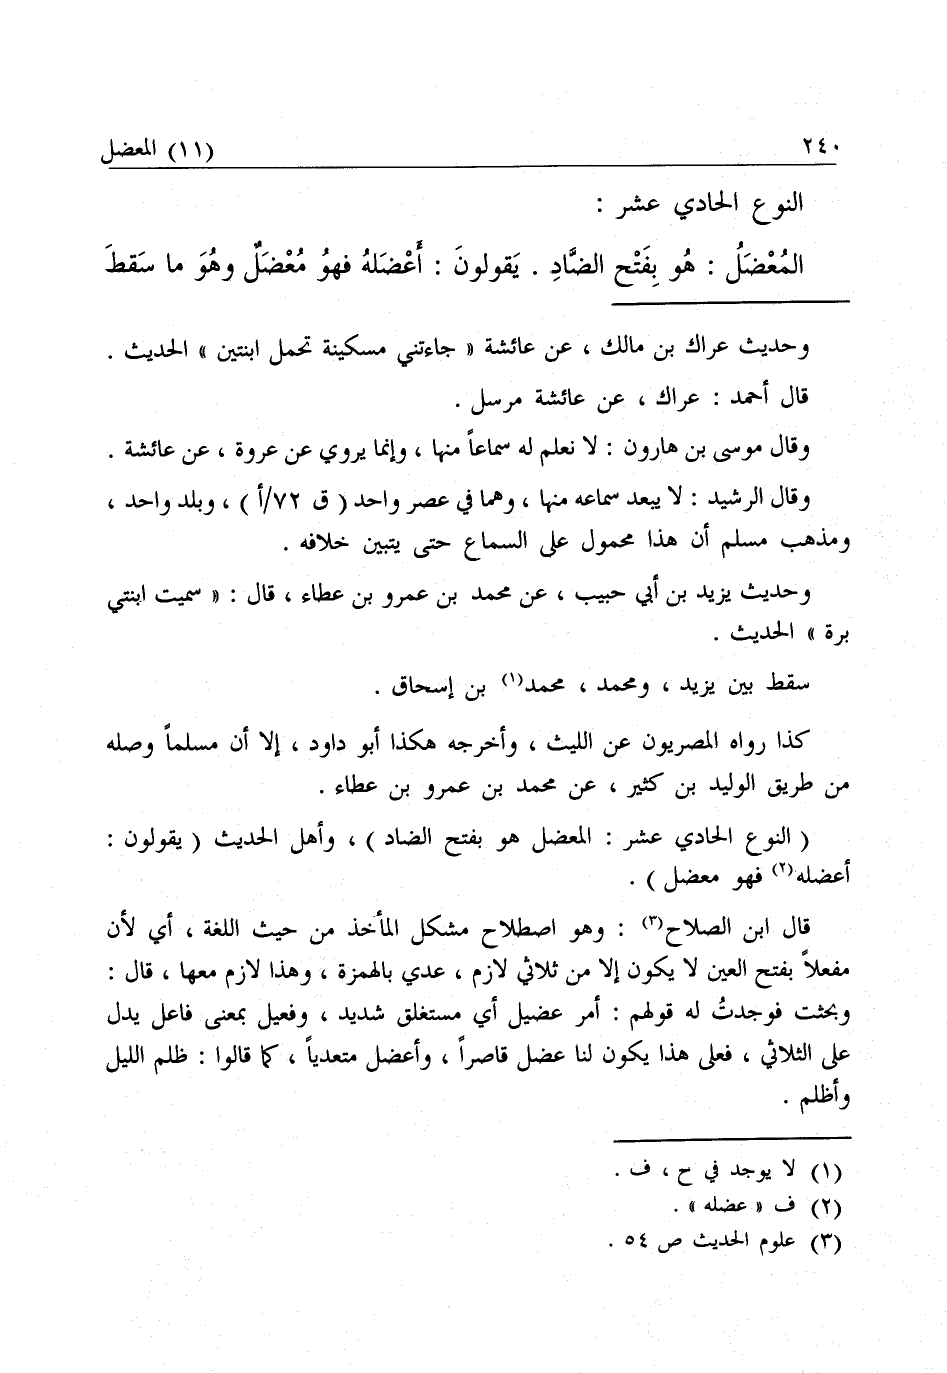 ٢٤٠ (١١) المعضل
النوع الحادي عشر :
المُعْضَلُ : هُو بِفَتْحِ الضَّادِ . يَقولونَ : أَعْضَلهُ فهوُ مُعْضَلٌ وهُوَ ما سَقطَ
وحديث عراك بن مالك ، عن عائشة « جاءتني مسكينة تحمل ابنتين » الحديث .
قال أحمد : عراك ، عن عائشة مرسل .
وقال موسى بن هارون : لا نعلم له سماعاً منها ، وإنما يروي عن عروة ، عن عائشة .
وقال الرشيد : لا يبعد سماعه منها ، وهما في عصر واحد ( ق ٧٢/أ ) ، وبلد واحد ،
ومذهب مسلم أن هذا محمول على السماع حتى يتبين خلافه .
وحديث يزيد بن أبي حبيب ، عن محمد بن عمرو بن عطاء ، قال : « سميت ابنتي
برة » الحديث .
سقط بين يزيد ، ومحمد ، محمد(١) بن إسحاق .
كذا رواه المصريون عن الليث ، وأخرجه هكذا أبو داود ، إلا أن مسلماً وصله
من طريق الوليد بن كثير ، عن محمد بن عمرو بن عطاء .
( النوع الحادي عشر : المعضل هو بفتح الضاد ) ، وأهل الحديث ( يقولون :
أعضله(٢) فهو معضل ) .
قال ابن الصلاح(٣) : وهو اصطلاح مشكل المأخذ من حيث اللغة ، أي لأن
مفعلاً بفتح العين لا يكون إلا من ثلاثي لازم ، عدي بالهمزة ، وهذا لازم معها ، قال :
وبحثت فوجدتُ له قولهم : أمر عضيل أي مستغلق شديد ، وفعيل بمعنى فاعل يدل
على الثلاثي ، فعلى هذا يكون لنا عضل قاصراً ، وأعضل متعدياً ، كما قالوا : ظلم الليل
وأظلم .
(١) لا يوجد في ح ، ف .
(٢) ف « عضله » .
(٣) علوم الحديث ص ٥٤ .